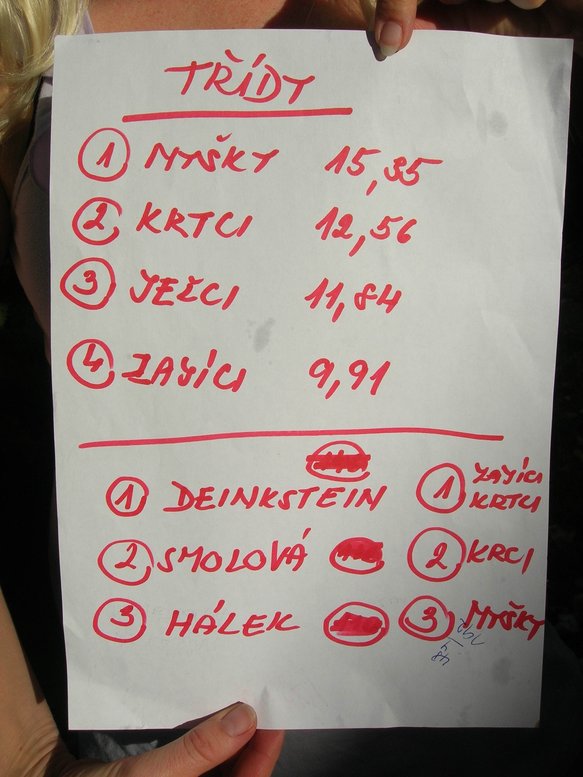 TŘÍDY
1 MYŠKY 15,35
2 KRTCI 12,56
3 JEŽCI 11,84
4 ZAJÍCI 9,91
1 DEINKSTEIN 1 ZAJÍCI KRTCI
2 SMOLOVÁ 2 KRCI
3 HÁLEK 3 MYŠKY